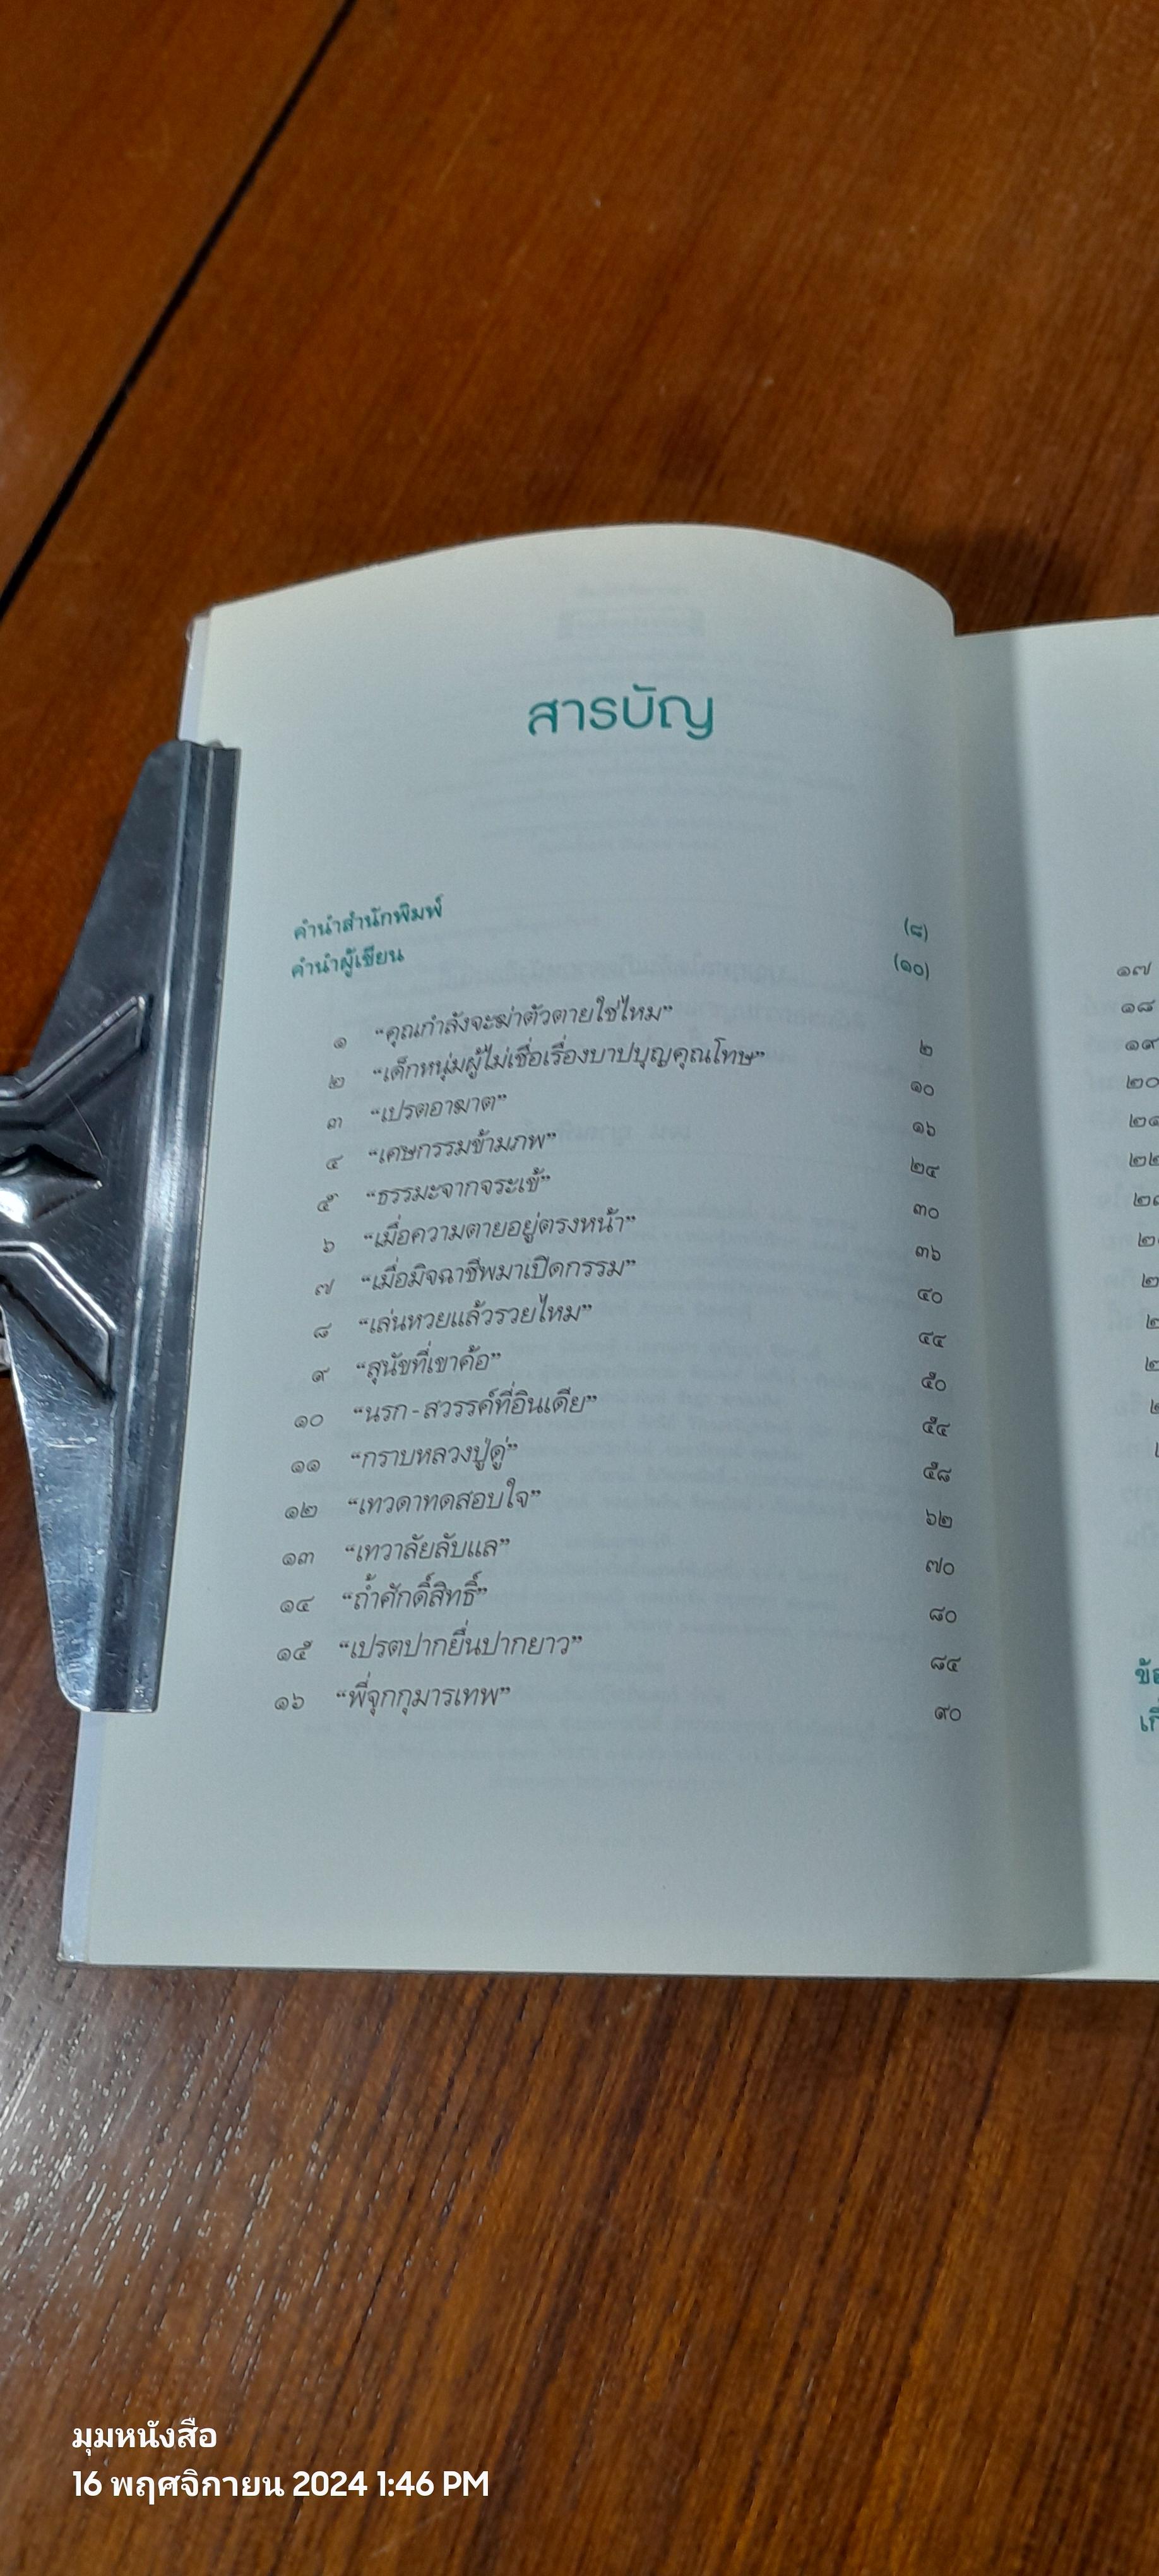 สารบัญ
คำนำสำนักพิมพ์ (๘)
คำนำผู้เขียน (๑๐)
๑ “คุณกำลังจะฆ่าตัวตายใช่ไหม” ๒
๒ “เด็กหนุ่มผู้ไม่เชื่อเรื่องบาปบุญคุณโทษ” ๑๐
๓ “เปรตอาฆาต” ๑๖
๔ “เศษกรรมข้ามภพ” ๒๔
๕ “ธรรมะจากจระเข้” ๓๐
๖ “เมื่อความตายอยู่ตรงหน้า” ๓๖
๗ “เมื่อมิจฉาชีพมาเปิดกรรม” ๔๐
๘ “เล่นหวยแล้วรวยไหม” ๔๔
๙ “สุนัขที่เขาค้อ” ๕๐
๑๐ “นรก-สวรรค์ที่อินเดีย” ๕๔
๑๑ “กราบหลวงปู่ดู่” ๕๘
๑๒ “เทวดาทดสอบใจ” ๖๒
๑๓ “เทวาลัยลับแล” ๗๐
๑๔ “ถ้ำศักดิ์สิทธิ์” ๘๐
๑๕ “เปรตปากยื่นปากยาว” ๘๔
๑๖ “พี่จุกกุมารเทพ” ๙๐
๑๗
๑๘
๑๙
๒๐
มุมหนังสือ
16 พฤศจิกายน 2024 1:46 PM